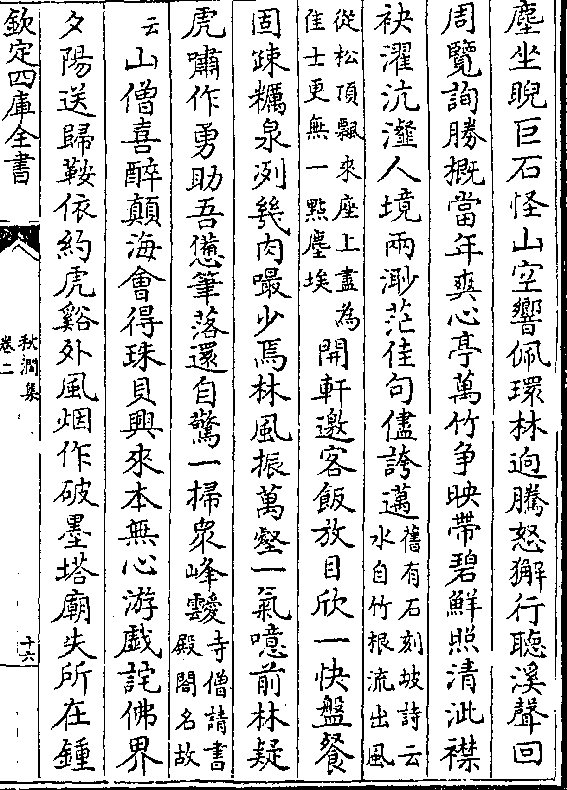 塵坐睨巨石怪山空響佩環林逈騰怒獬行聽溪聲回
周覽詢勝概當年爽心亭萬竹争映帶碧鮮照清泚襟
袂濯沆瀣人境兩渺茫佳句儘誇邁
舊有石刻坡詩云
水自竹根流出風
從松頂飄來座上盡為
佳士更無一點塵埃
開軒邀客飯放目欣一快盤餐
固疎糲泉冽幾肉嘬少焉林風振萬壑一氣噫前林疑
虎嘯作勇助吾憊筆落還自驚一掃衆峰靉
寺僧請書
殿閣名故
云
山僧喜醉顛海會得珠貝興來本無心游戲詫佛界
夕陽送歸鞍依約虎谿外風烟作破墨塔廟失所在鍾
欽定四庫全書
秋澗集
卷二
十六